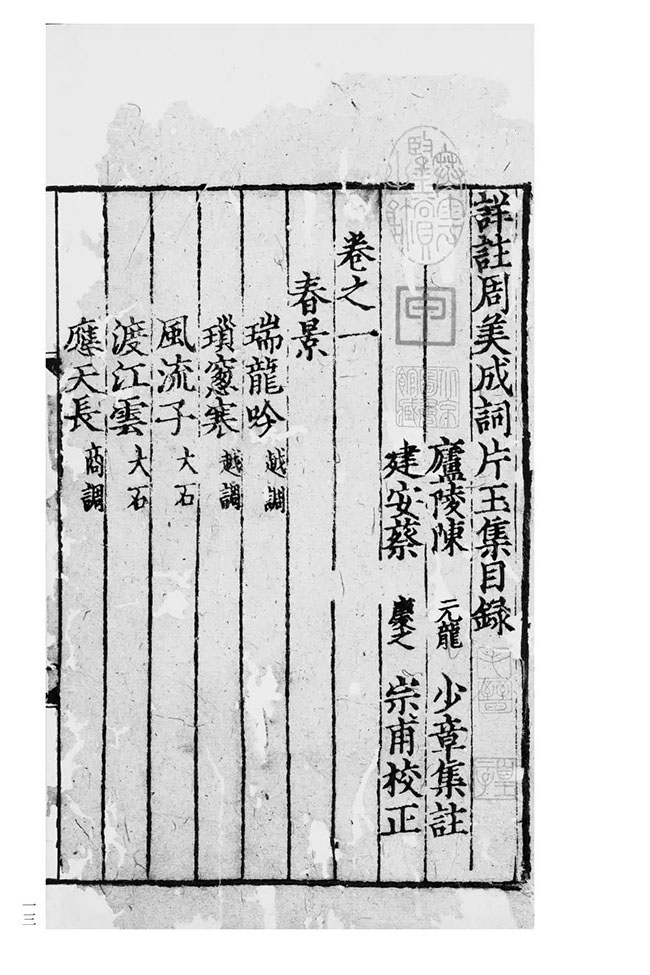 詳註周美成詞片玉集目録
廬陵陳 元龍 少章集註
建安蔡 慶之 宗甫校正
卷之一
春景
瑞龍吟 越調
瑣窻寒 越調
風流子 大石
渡江雲 大石
應天長 商調
一三